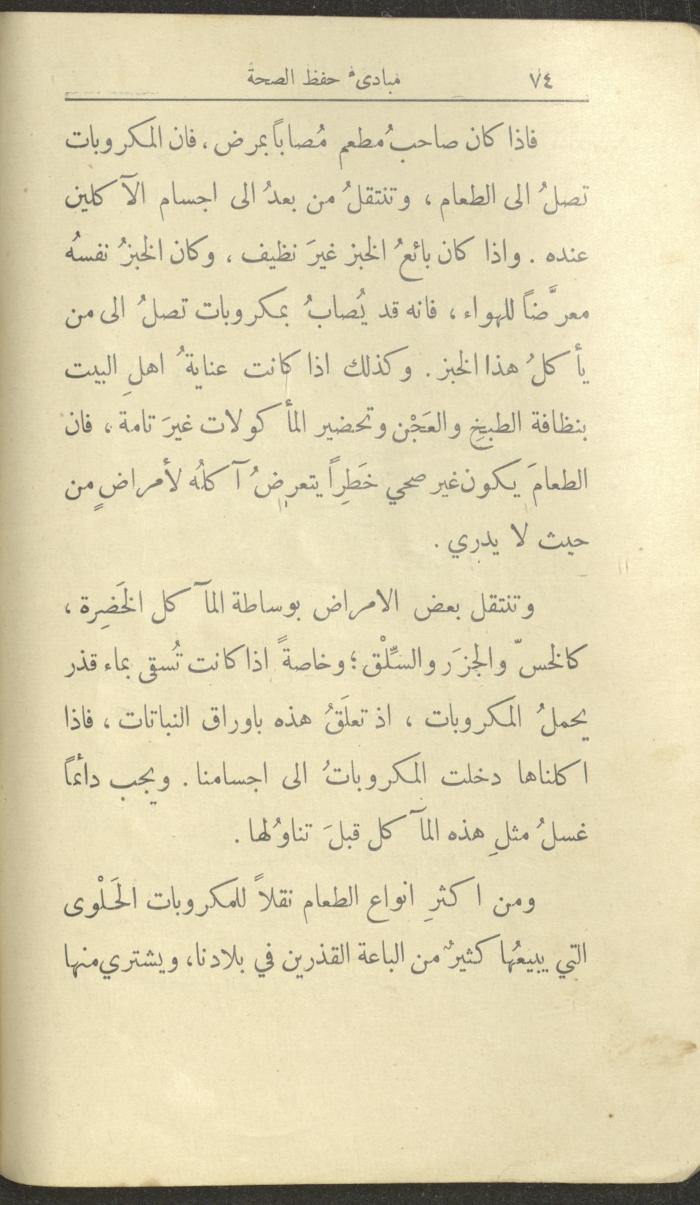 ٧٤ مبادىء حفظ الصحة
فاذا كان صاحبُ مطعم مُصاباً بمرض ، فان المكروبات
تصلُ الى الطعام ، وتنتقلُ من بعدُ الى اجسام الآكلين
عنده . واذا كان بائعُ الخبز غيرَ نظيف ، وكان الخبزُ نفسهُ
معرَّضاً للهواء ، فانه قد يُصابُ بمكروبات تصلُ الى من
يأكلُ هذا الخبز . وكذلك اذا كانت عنايةُ اهلِ البيت
بنظافة الطبخِ والعَجْن وتحضير المأكولات غيرَ تامة ، فان
الطعامَ يكون غير صحي خَطِراً يتعرضُ آكلُه لأمراضٍ من
حيث لا يدري .
وتنتقل بعض الامراض بوساطة المآكل الخَضِرة ،
كالخسّ والجزَر والسِّلْق ؛ وخاصةً اذا كانت تُسقى بماء قذر
يحملُ المكروبات ، اذ تعلَقُ هذه باوراق النباتات ، فاذا
اكلناها دخلت المكروباتُ الى اجسامنا . ويجب دائماً
غسلُ مثلِ هذه المآكل قبلَ تناوُلها .
ومن اكثرِ انواع الطعام نقلاً للمكروبات الحَلْوى
التي يبيعُها كثيرٌ من الباعة القذرين في بلادنا ، ويشتري منها